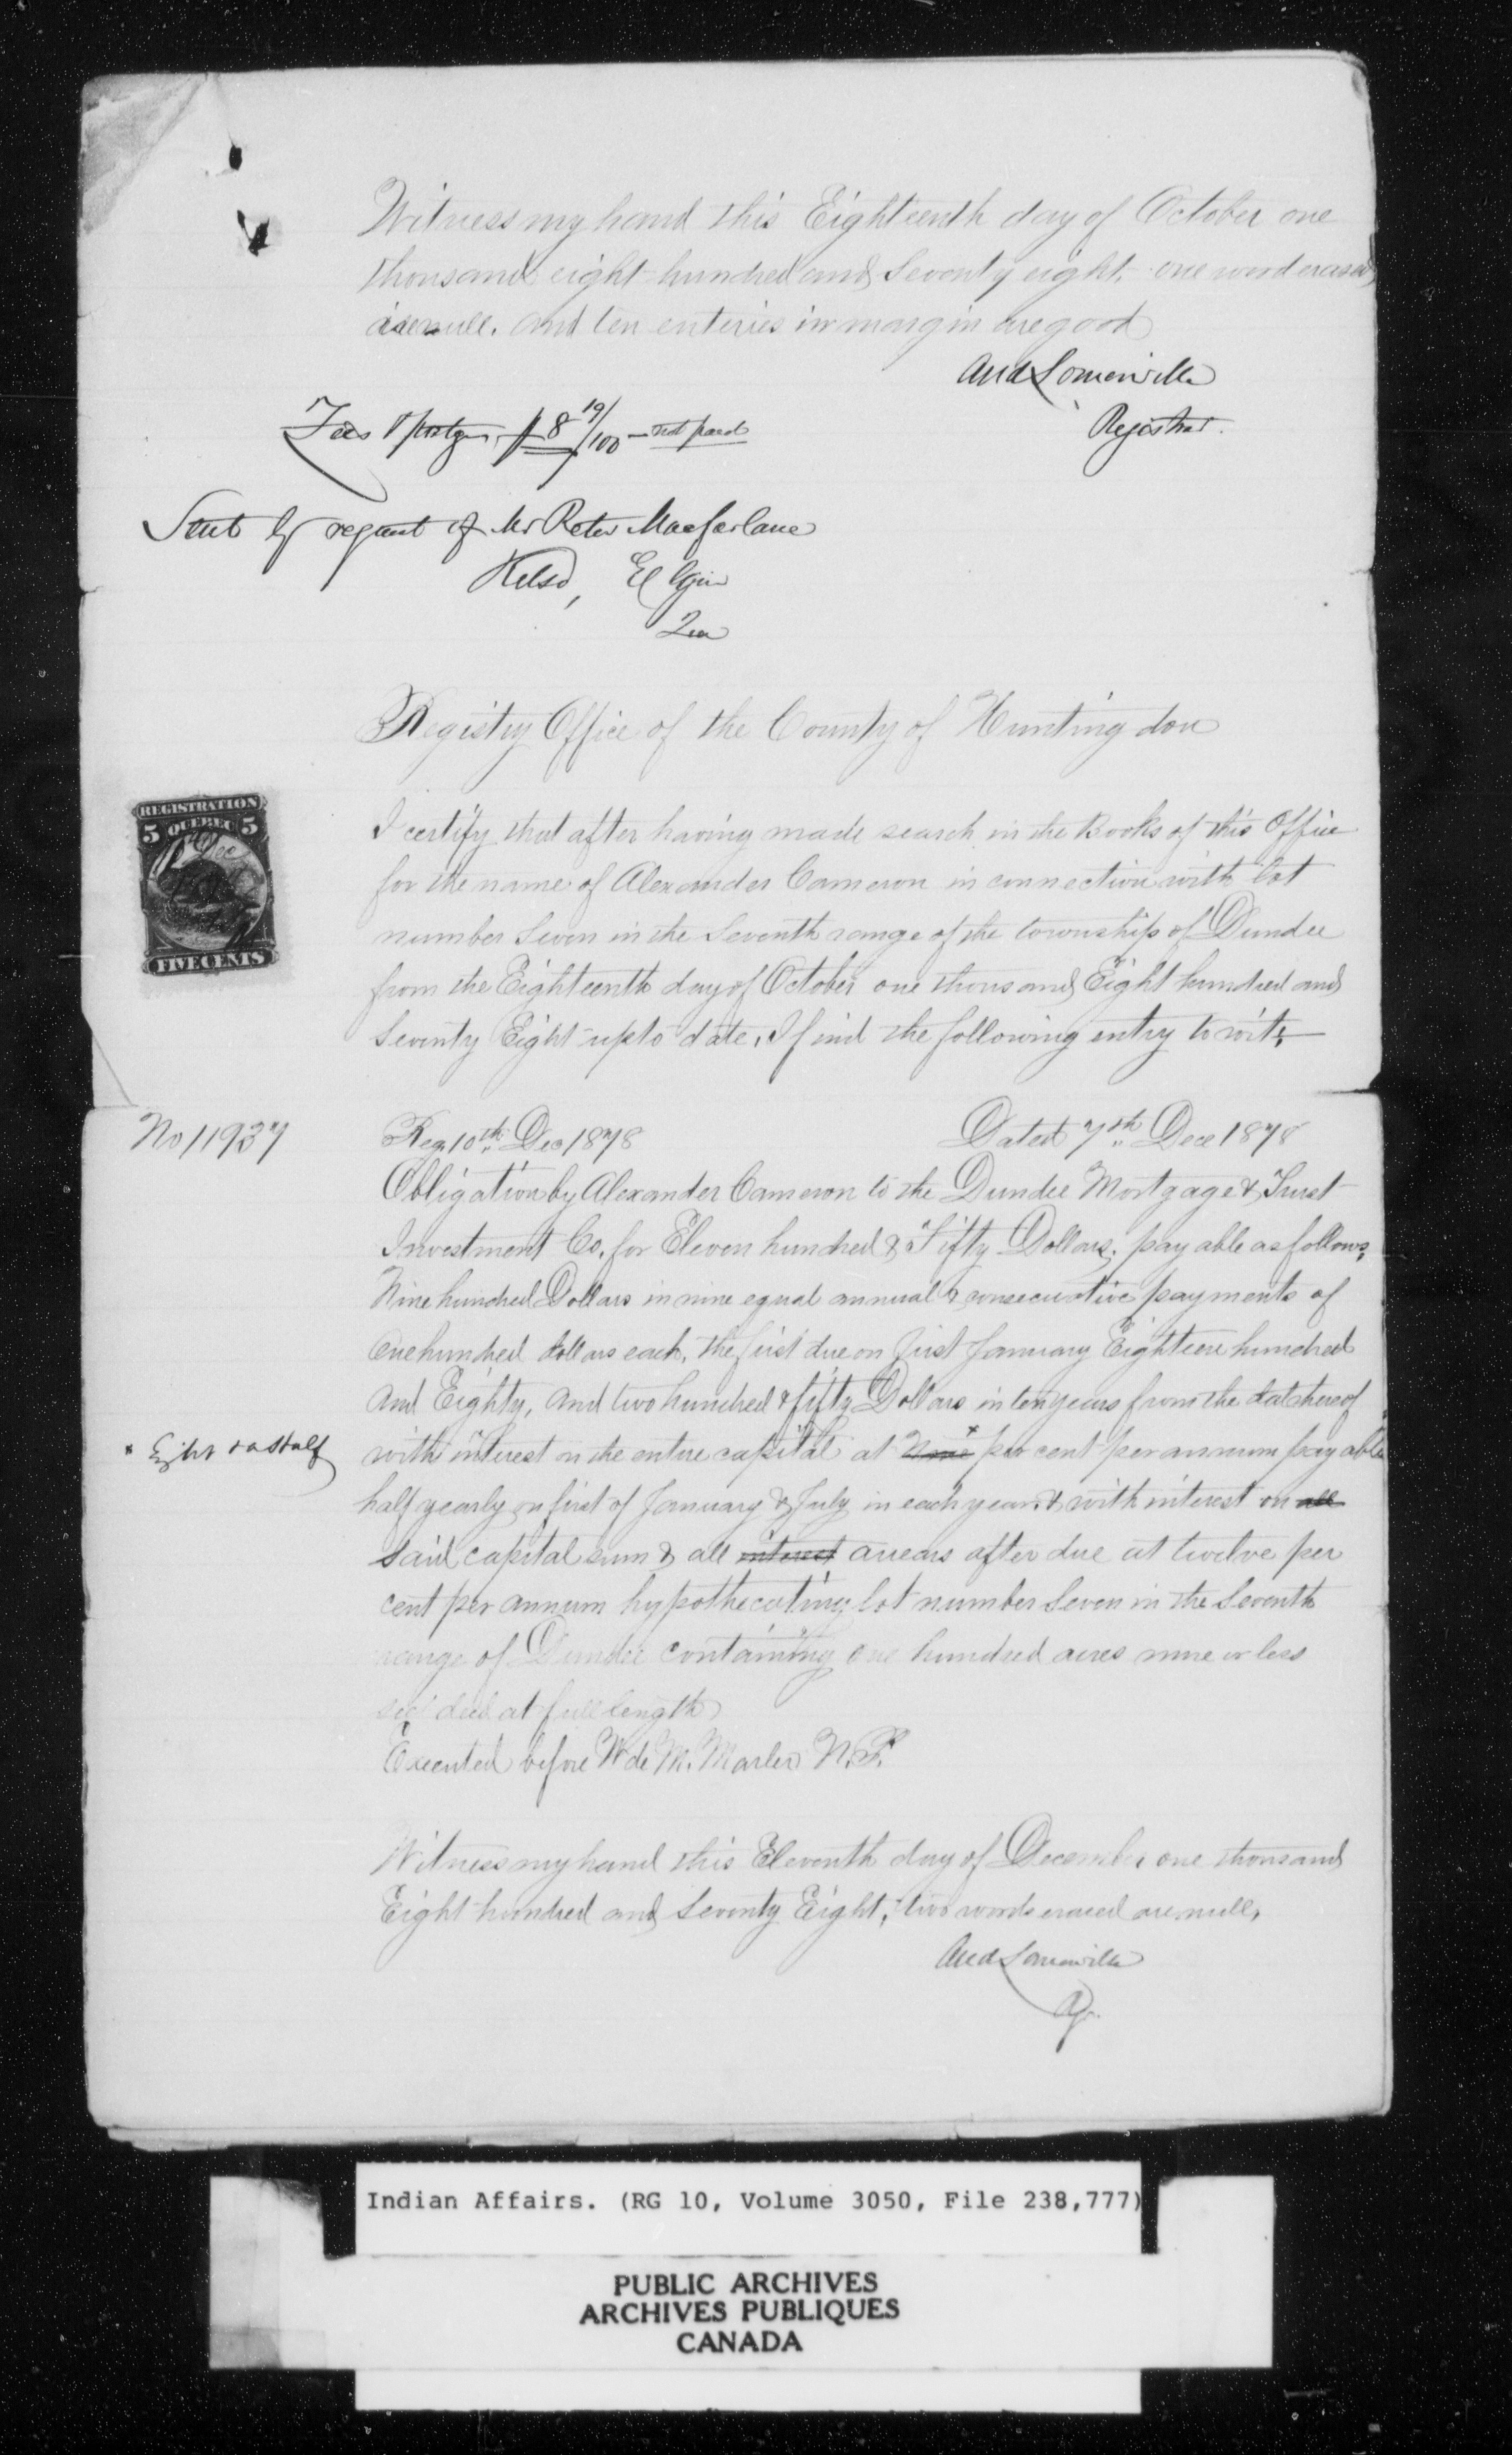 Witness my hand this Eighteenth day of October one
thousand eight hundred and Seventy eight, one word erased
is null. And ten enteries in margin are good
And Somerville
Registrar.
Fees & postge $8 19/100 – not paid
Sent by request of Mr Peter Macfarlane
Kelso, Elgin
Que
Registry Office of the County of Huntingdon
REGISTRATION
5 QUEBEC 5
Dec
FIVE CENTS
I certify that after having made search in the Books of this Office
for the name of Alexander Cameron in connection with lot
number Seven in the Seventh range of the township of Dundee
from the Eighteenth day of October one thousand Eight hundred and
Seventy Eight up to date, I find the following entry to wit,
No 11937
Reg. 10th Dec 1878 Dated 7th Dece 1878
Obligation by Alexander Cameron to the Dundee Mortgage & Trust
Investment Co. for Eleven hundred & Fifty Dollars, payable as follows,
Nine hundred Dollars in nine equal annual & consecutive payments of
One hundred dollars each, the first due on first January Eighteen hundred
and Eighty, and two hundred & fifty Dollars in ten years from the date hereof
* Eight & a half
with interest on the entire capital at Nine * per cent per annum payable
half yearly on first of January & July in each year, & with interest on all
said capital sum & all interest arrears after due at twelve per
cent per annum hypothecating lot number Seven in the Seventh
range of Dundee containing one hundred acres more or less
see deed at full length
Executed before W de M. Marler N.P.
Witness my hand this Eleventh day of December one thousand
Eight hundred and Seventy Eight, two words erased are null,
And Somerville
Rgr.
Indian Affairs. (RG 10, Volume 3050, File 238,777)
PUBLIC ARCHIVES
ARCHIVES PUBLIQUES
CANADA